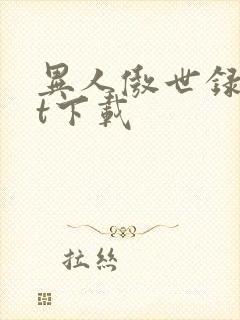 異人傲世録
t下載
拉丝